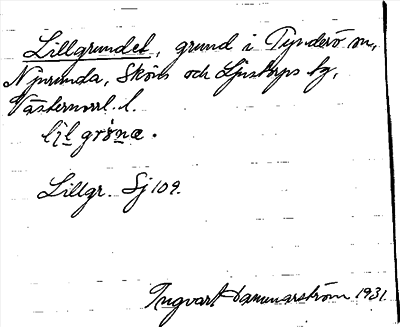 Lillgrundet, grund i Tynderö sn,
Njurunda, Sköns och Ljustorps tg,
Västernorrl. l.
lilgrɵnæ.
Lillgr. Sj 109.
Ingvart Hammarström 1931